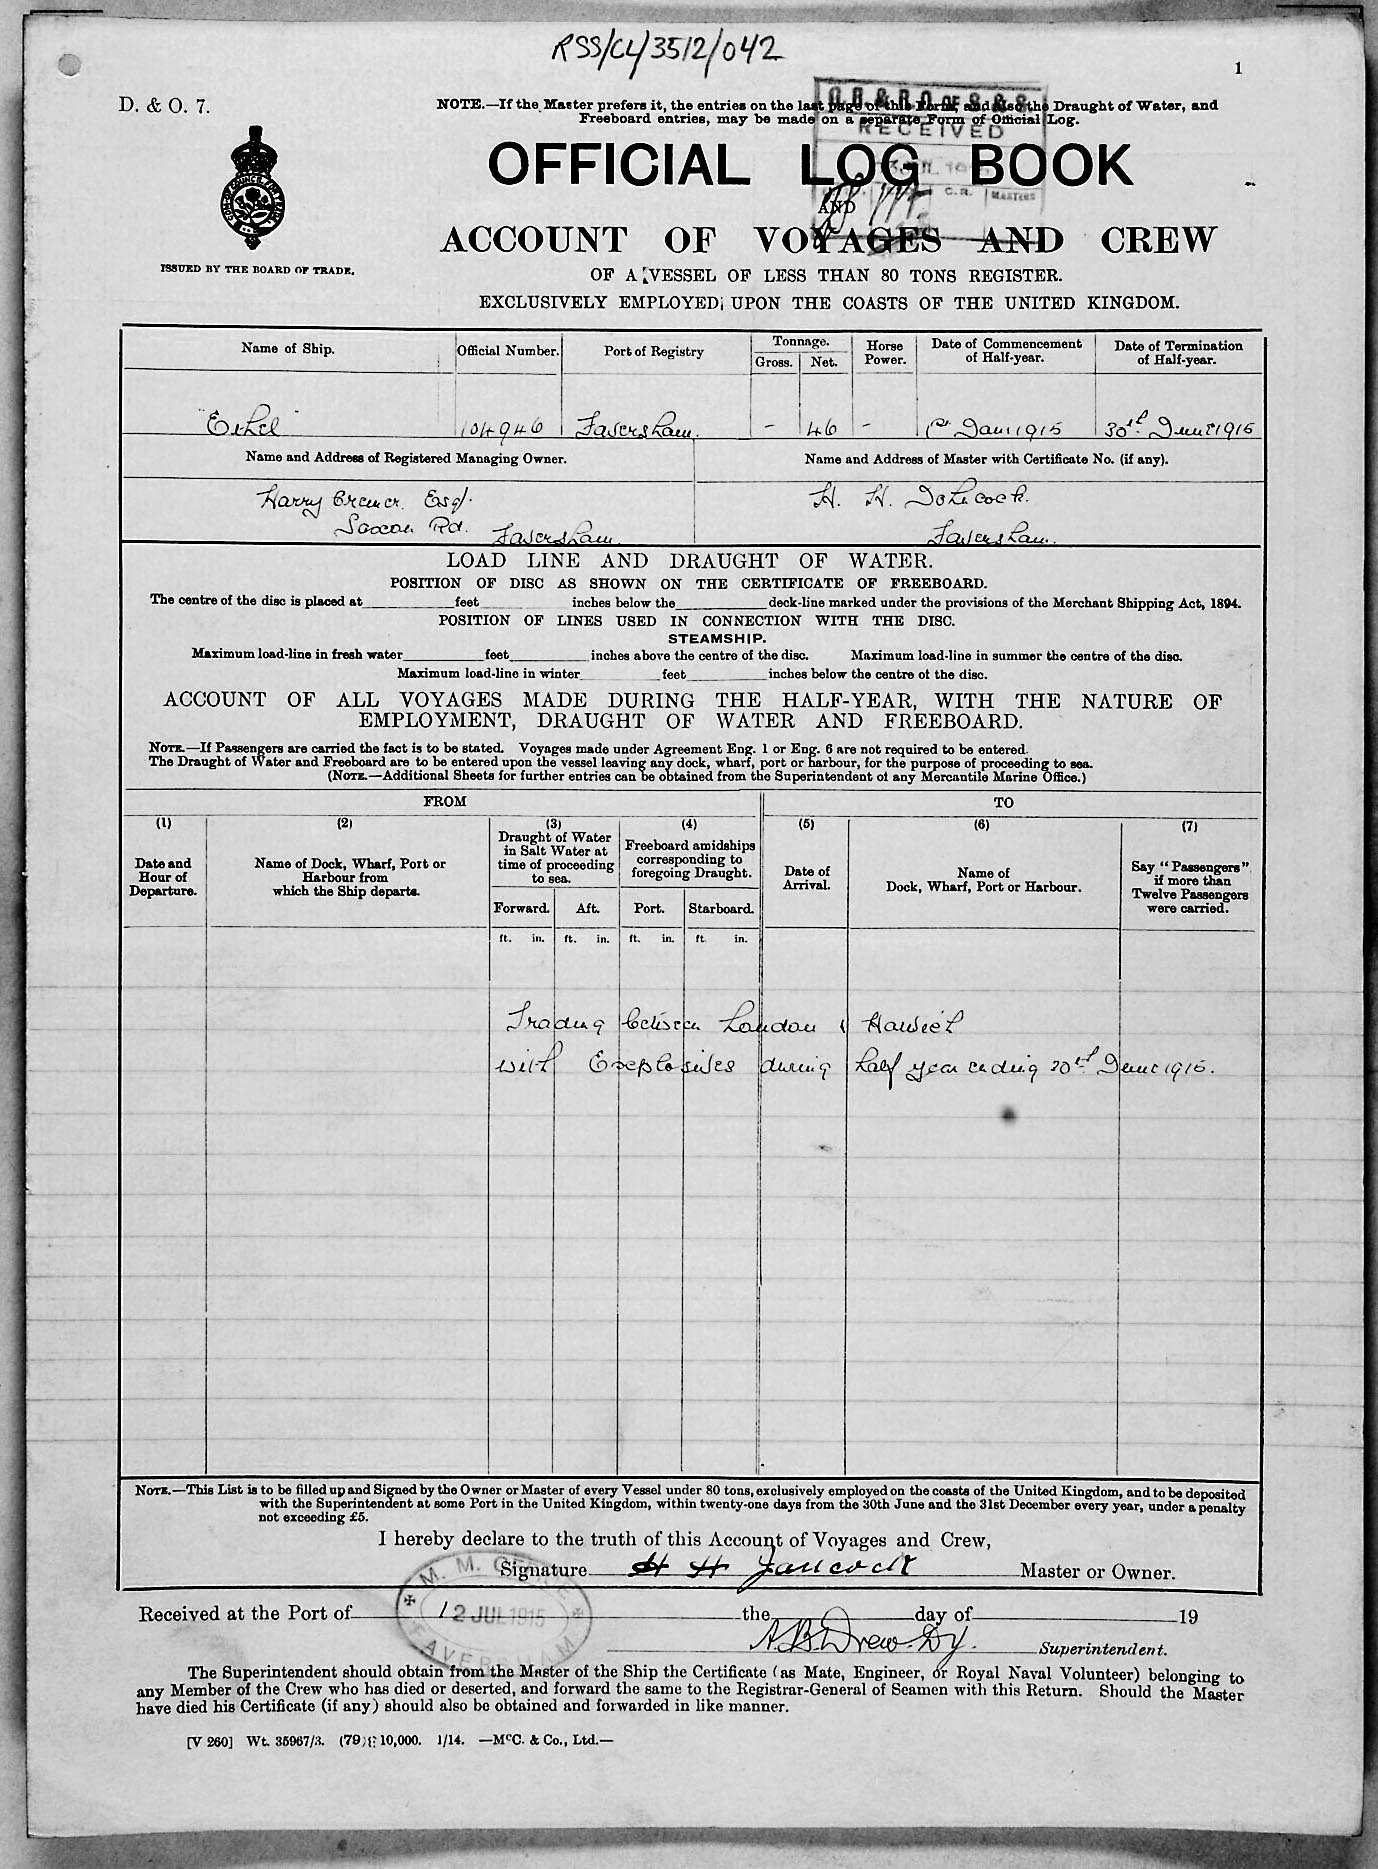 RSS/CL/3512/042
1
D. & O. 7.
NOTE.—If the Master prefers it, the entries on the last page of this Form, and also the Draught of Water, and
Freeboard entries, may be made on a separate Form of Official Log.
RECEIVED
C.R. MASTERS
OFFICIAL LOG BOOK
AND
ACCOUNT OF VOYAGES AND CREW
ISSUED BY THE BOARD OF TRADE.
OF A VESSEL OF LESS THAN 80 TONS REGISTER.
EXCLUSIVELY EMPLOYED UPON THE COASTS OF THE UNITED KINGDOM.
Name of Ship. Official Number. Port of Registry Tonnage. Gross. Net. Horse Power. Date of Commencement of Half-year. Date of Termination of Half-year.
"Ethel" 104946 Faversham. - 46 - 1st Jan 1915 30th June 1915
Name and Address of Registered Managing Owner. Name and Address of Master with Certificate No. (if any).
Harry Cremer Esq. H. H.
Saxon Rd. Faversham. Faversham.
LOAD LINE AND DRAUGHT OF WATER.
POSITION OF DISC AS SHOWN ON THE CERTIFICATE OF FREEBOARD.
The centre of the disc is placed at feet inches below the deck-line marked under the provisions of the Merchant Shipping Act, 1894.
POSITION OF LINES USED IN CONNECTION WITH THE DISC.
STEAMSHIP.
Maximum load-line in fresh water feet inches above the centre of the disc. Maximum load-line in summer the centre of the disc.
Maximum load-line in winter feet inches below the centre of the disc.
ACCOUNT OF ALL VOYAGES MADE DURING THE HALF-YEAR, WITH THE NATURE OF
EMPLOYMENT, DRAUGHT OF WATER AND FREEBOARD.
NOTE.—If Passengers are carried the fact is to be stated. Voyages made under Agreement Eng. 1 or Eng. 6 are not required to be entered.
The Draught of Water and Freeboard are to be entered upon the vessel leaving any dock, wharf, port or harbour, for the purpose of proceeding to sea.
(NOTE.—Additional Sheets for further entries can be obtained from the Superintendent of any Mercantile Marine Office.)
FROM TO
(1) (2) (3) (4) (5) (6) (7)
Date and Hour of Departure.
Name of Dock, Wharf, Port or Harbour from which the Ship departs.
Draught of Water in Salt Water at time of proceeding to sea.
Freeboard amidships corresponding to foregoing Draught.
Date of Arrival.
Name of Dock, Wharf, Port or Harbour.
Say "Passengers" if more than Twelve Passengers were carried.
Forward. Aft. Port. Starboard.
ft. in. ft. in. ft. in. ft. in.
Trading between London & Harwich
with Explosives during half year ending 30th June 1915.
NOTE.—This List is to be filled up and Signed by the Owner or Master of every Vessel under 80 tons, exclusively employed on the coasts of the United Kingdom, and to be deposited
with the Superintendent at some Port in the United Kingdom, within twenty-one days from the 30th June and the 31st December every year, under a penalty
not exceeding £5.
I hereby declare to the truth of this Account of Voyages and Crew,
Signature H H Master or Owner.
M. M. OFFICE
12 JUL 1915
FAVERSHAM
Received at the Port of the day of 19
A. B. Drew. Dy. Superintendent.
The Superintendent should obtain from the Master of the Ship the Certificate (as Mate, Engineer, or Royal Naval Volunteer) belonging to
any Member of the Crew who has died or deserted, and forward the same to the Registrar-General of Seamen with this Return. Should the Master
have died his Certificate (if any) should also be obtained and forwarded in like manner.
[V 260] Wt. 35967/3. (79) 10,000. 1/14. —McC. & Co., Ltd.—